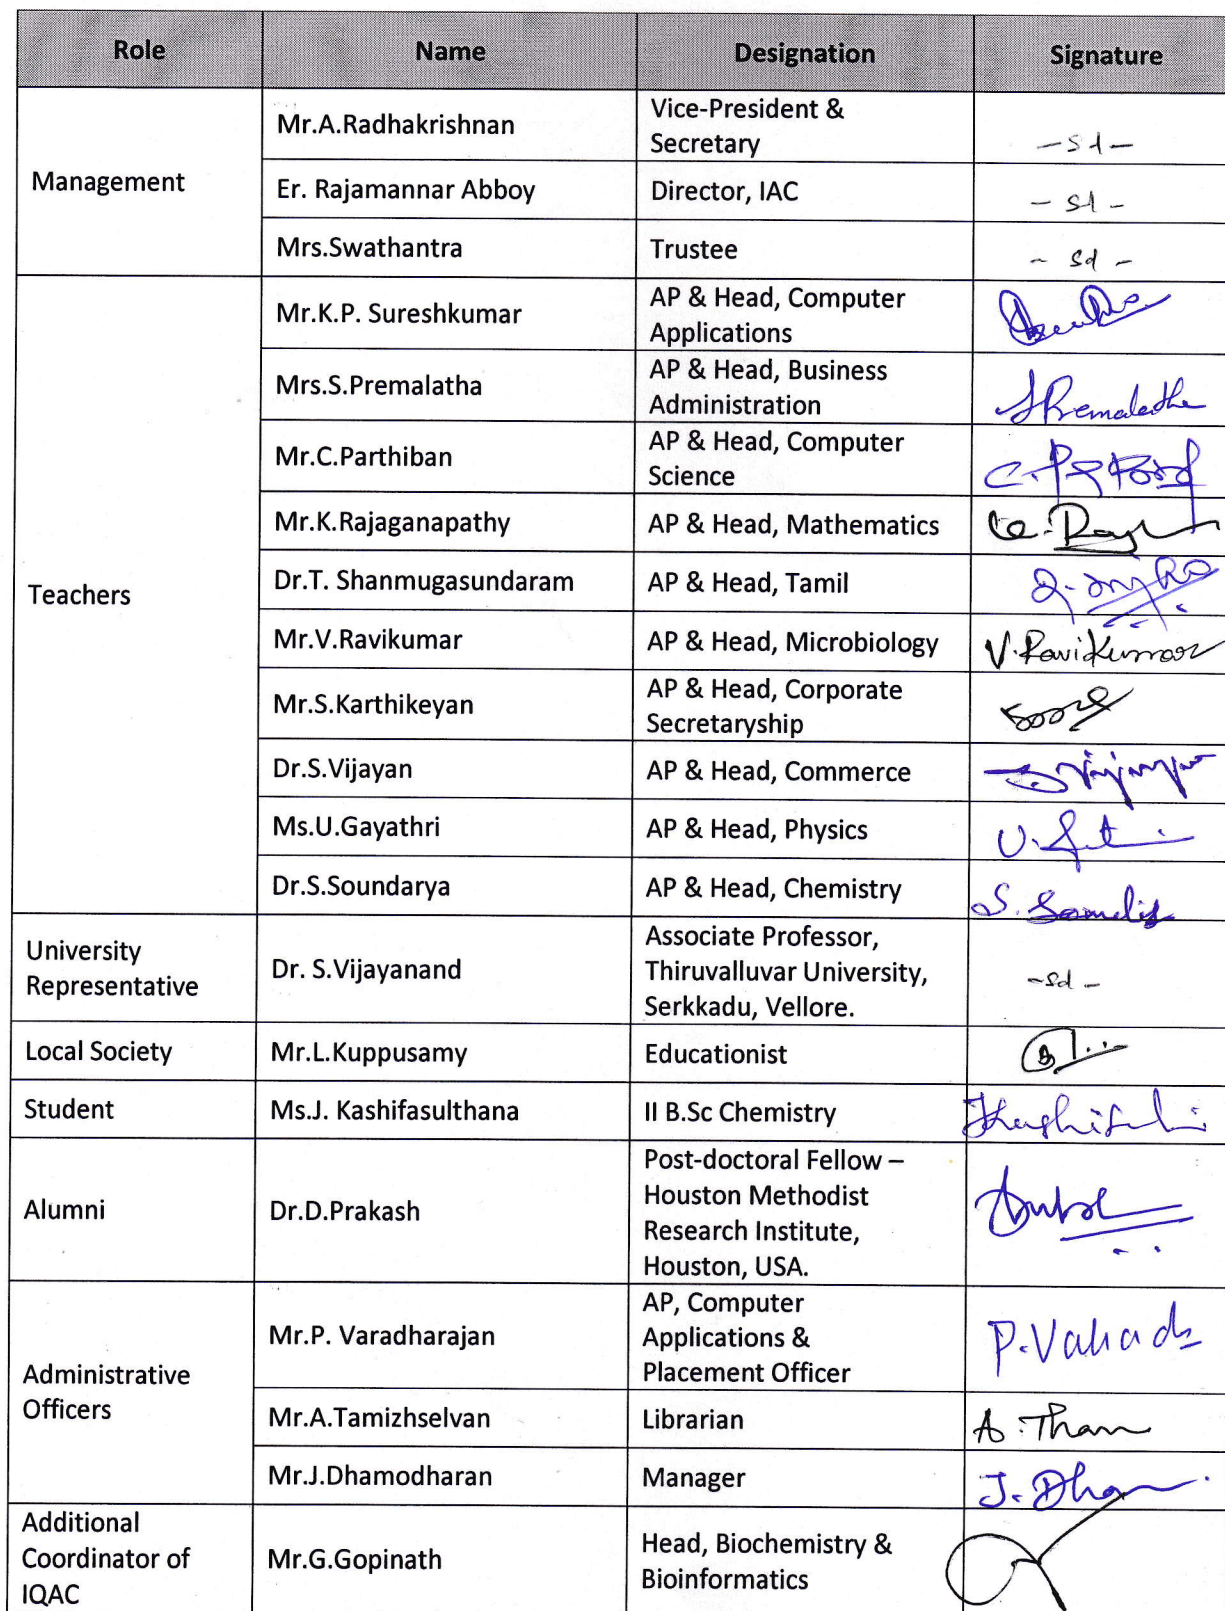 Role Name Designation Signature
Management
Mr.A.Radhakrishnan
Vice-President &
Secretary
-sd-
Er. Rajamannar Abboy
Director, IAC
- sd -
Mrs.Swathantra
Trustee
- sd -
Teachers
Mr.K.P. Sureshkumar
AP & Head, Computer
Applications
Mrs.S.Premalatha
AP & Head, Business
Administration
Mr.C.Parthiban
AP & Head, Computer
Science
Mr.K.Rajaganapathy
AP & Head, Mathematics
Dr.T. Shanmugasundaram
AP & Head, Tamil
Mr.V.Ravikumar
AP & Head, Microbiology
V.Ravikumar
Mr.S.Karthikeyan
AP & Head, Corporate
Secretaryship
Dr.S.Vijayan
AP & Head, Commerce
Ms.U.Gayathri
AP & Head, Physics
Dr.S.Soundarya
AP & Head, Chemistry
University
Representative
Dr. S.Vijayanand
Associate Professor,
Thiruvalluvar University,
Serkkadu, Vellore.
-sd -
Local Society
Mr.L.Kuppusamy
Educationist
Student
Ms.J. Kashifasulthana
II B.Sc Chemistry
Alumni
Dr.D.Prakash
Post-doctoral Fellow –
Houston Methodist
Research Institute,
Houston, USA.
Administrative
Officers
Mr.P. Varadharajan
AP, Computer
Applications &
Placement Officer
Mr.A.Tamizhselvan
Librarian
Mr.J.Dhamodharan
Manager
Additional
Coordinator of
IQAC
Mr.G.Gopinath
Head, Biochemistry &
Bioinformatics